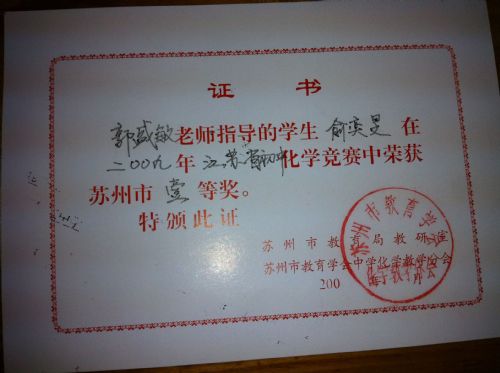 证 书
郭盛敏老师指导的学生 俞奕旻 在
二00九 年 江苏省初中化学竞赛中荣获
苏州市 壹 等奖。
特颁此证
苏州市教育局教研室
苏州市教育学会中学化学教学分会
200 月
苏州市教育学会